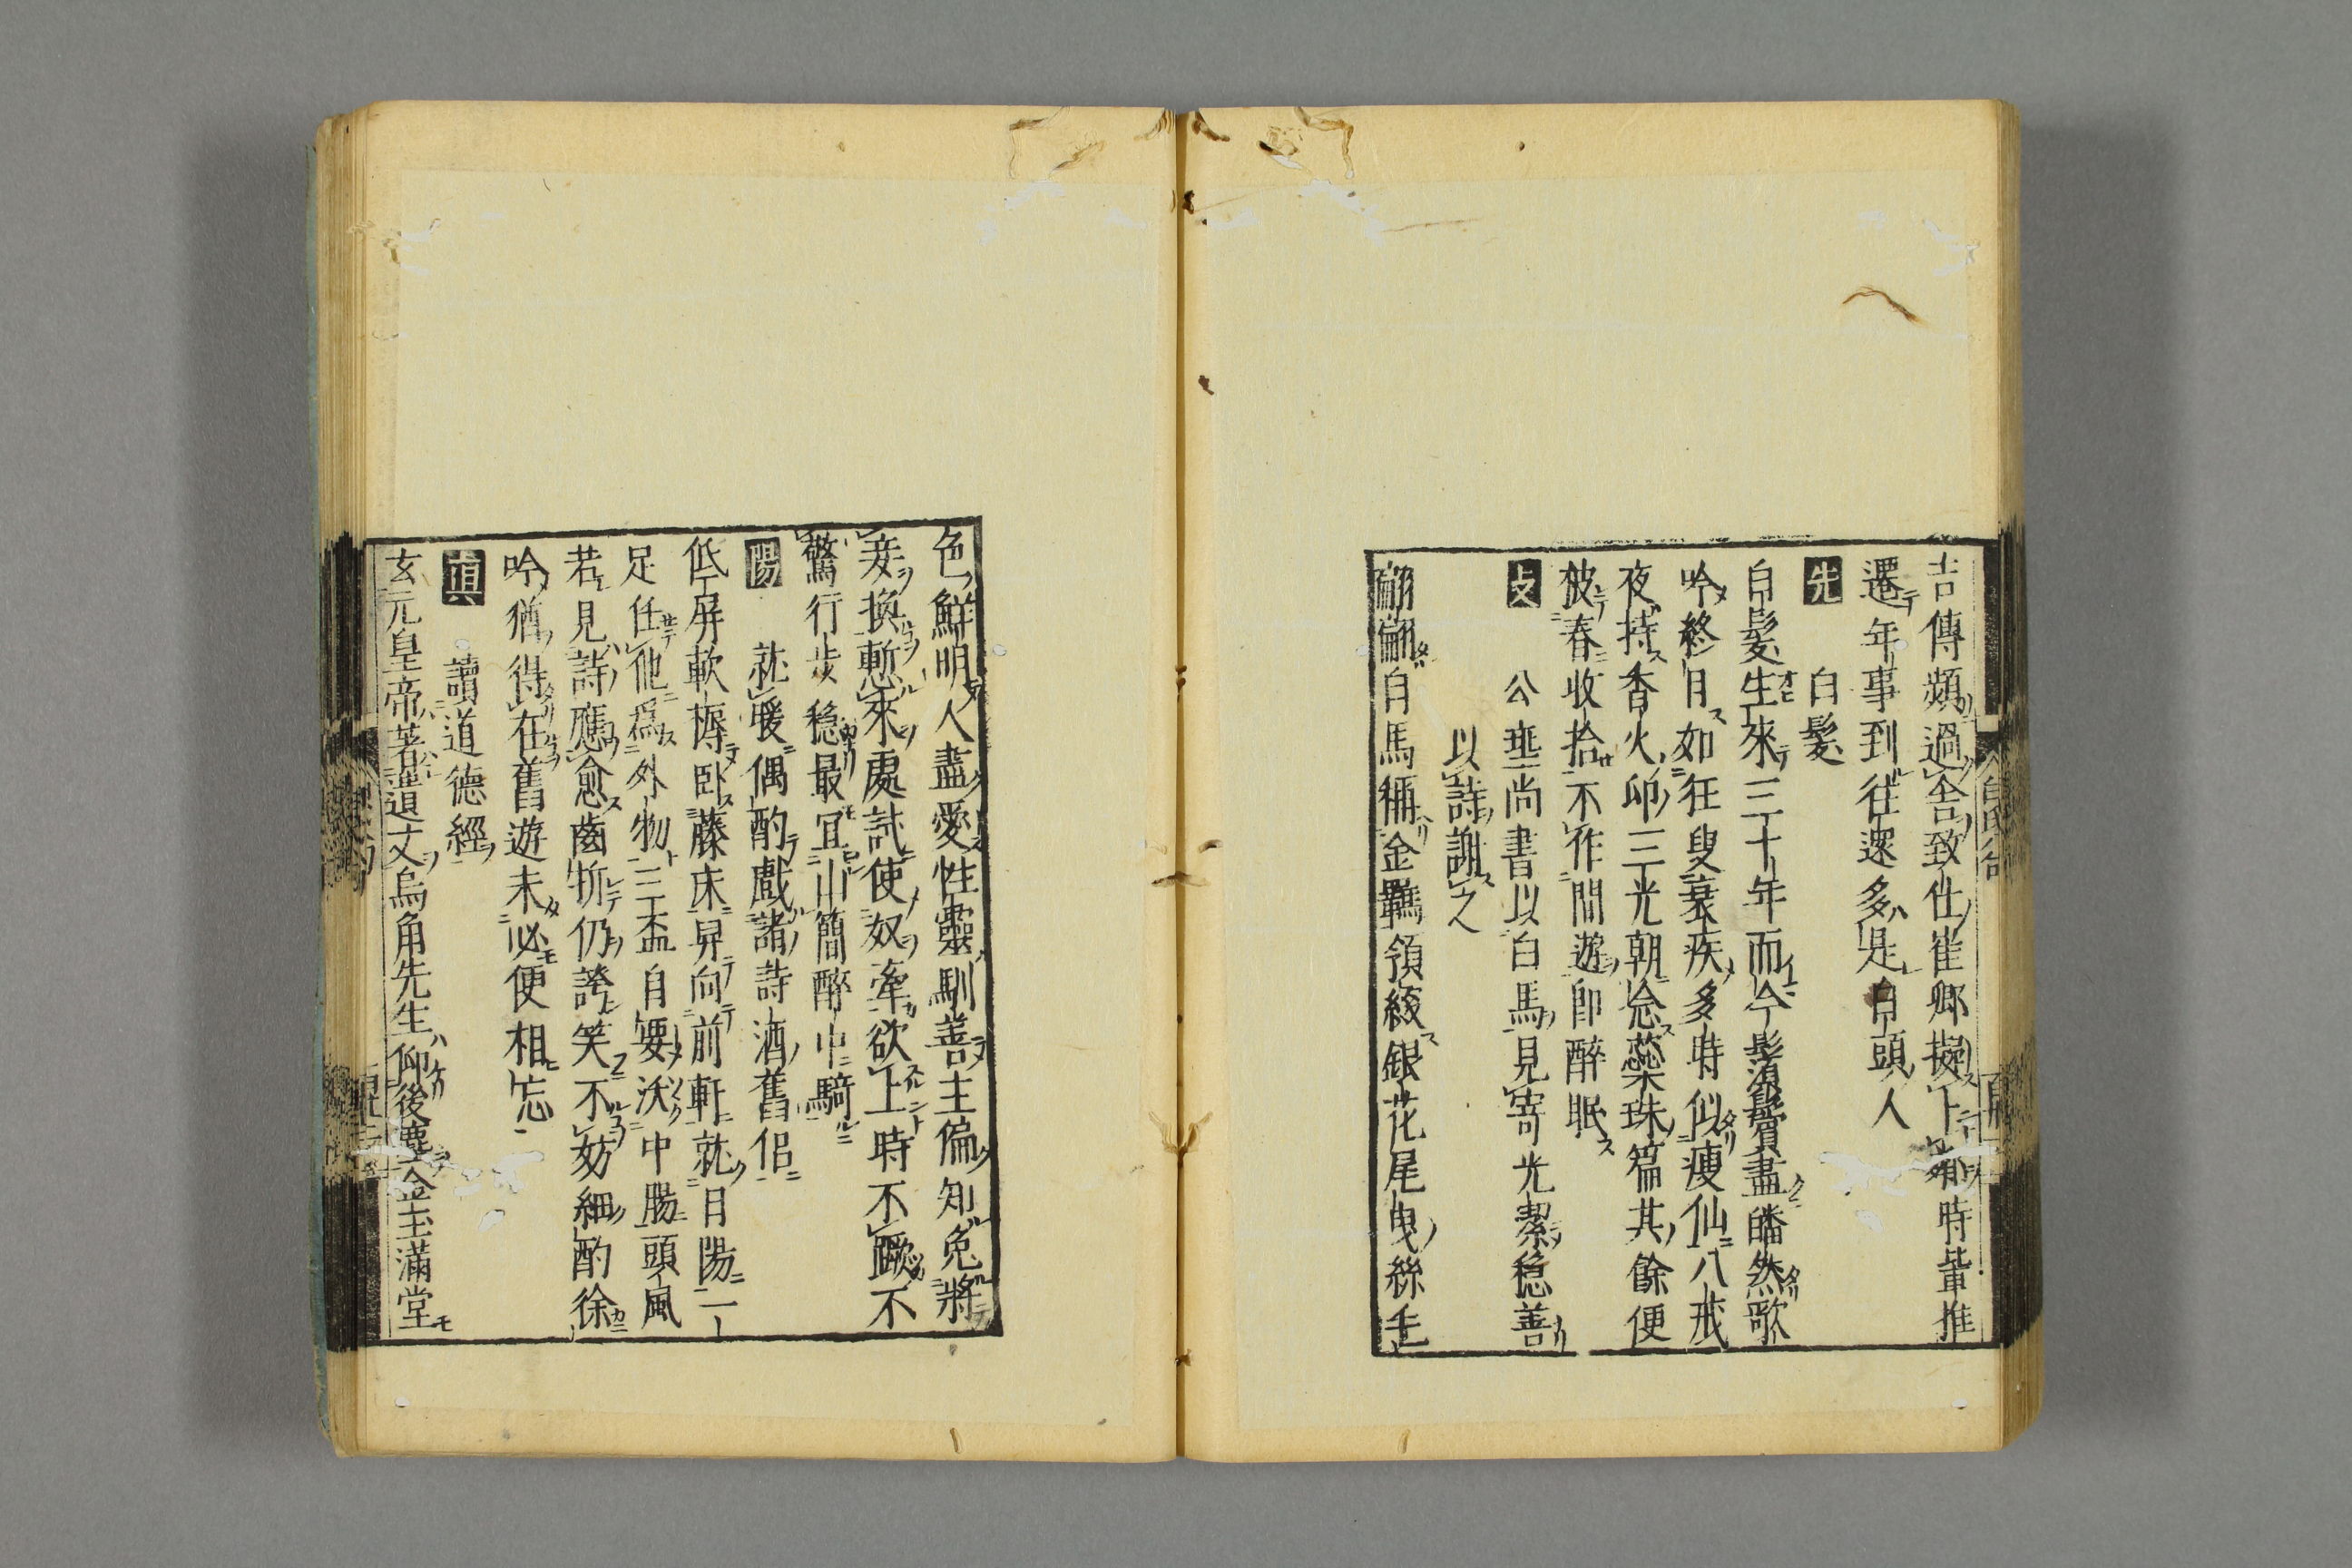 吉傳頻過舍致仕崔卿擬下
時輩推
遷年事到往還多是白頭人
先　白髮
白髮生來三十年而今鬚鬢盡皤然歌
吟終日如狂叟衰疾多時似瘦仙八戒
夜持香火印三光朝念蘂珠篇其餘便
被春收拾不作閒遊即醉眠
公垂尚書以白馬見寄光潔穩善
以詩謝之
翩翩白馬稱金羈領綴銀花尾曳絲毛
色鮮明人盡愛性靈馴善主偏知免將
妾換慙來處試使奴牽欲上時不蹶不
驚行步穩最冝山簡醉中騎
陽　就暖偶酌戲諸詩酒舊侶
低屏軟褥臥藤床舁向前軒就日陽一
足任他爲外物三盃自要沃中腸頭風
若見詩應愈齒折仍誇笑不妨細酌徐
吟猶得在舊遊未必便相忘
真　讀道德經
玄元皇帝著遺文烏角先生仰後塵金玉滿堂